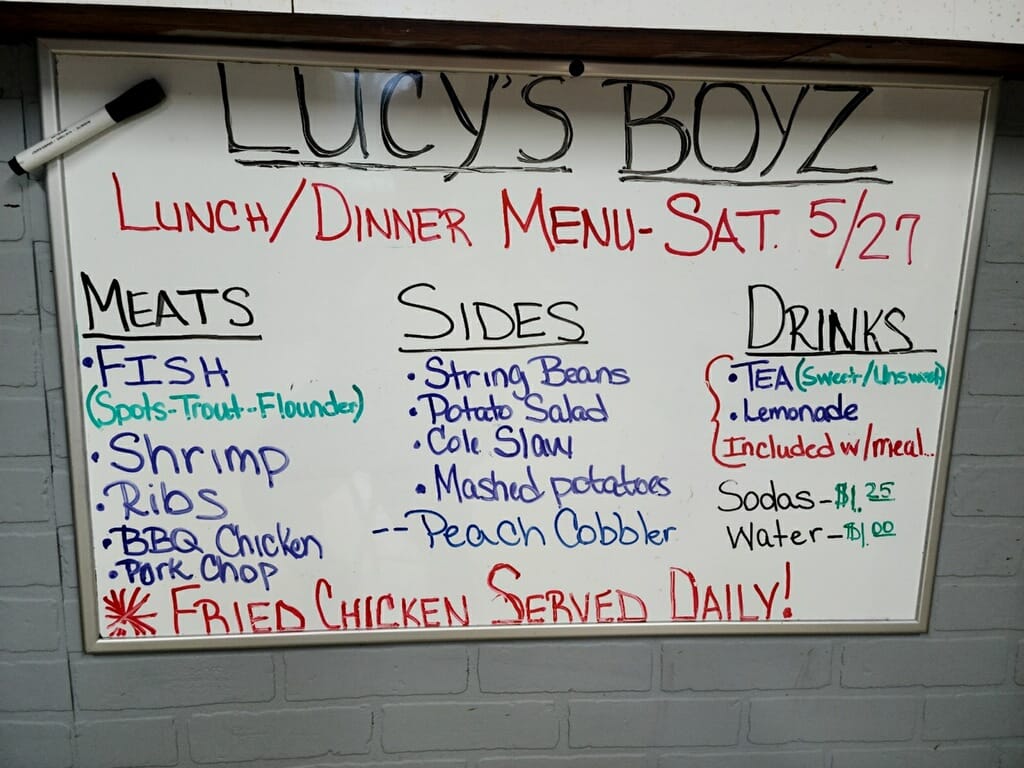 LUCY'S BOYZ
LUNCH/DINNER MENU- SAT. 5/27
MEATS
• FISH
(Spots-Trout-Flounder)
• Shrimp
• Ribs
• BBQ Chicken
• Pork Chop
SIDES
• String Beans
• Potato Salad
• Cole Slaw
• Mashed potatoes
-- Peach Cobbler
DRINKS
• TEA (Sweet/Unsweet)
• Lemonade
Included w/meal...
Sodas - $1.25
Water - $1.00
FRIED CHICKEN SERVED DAILY!